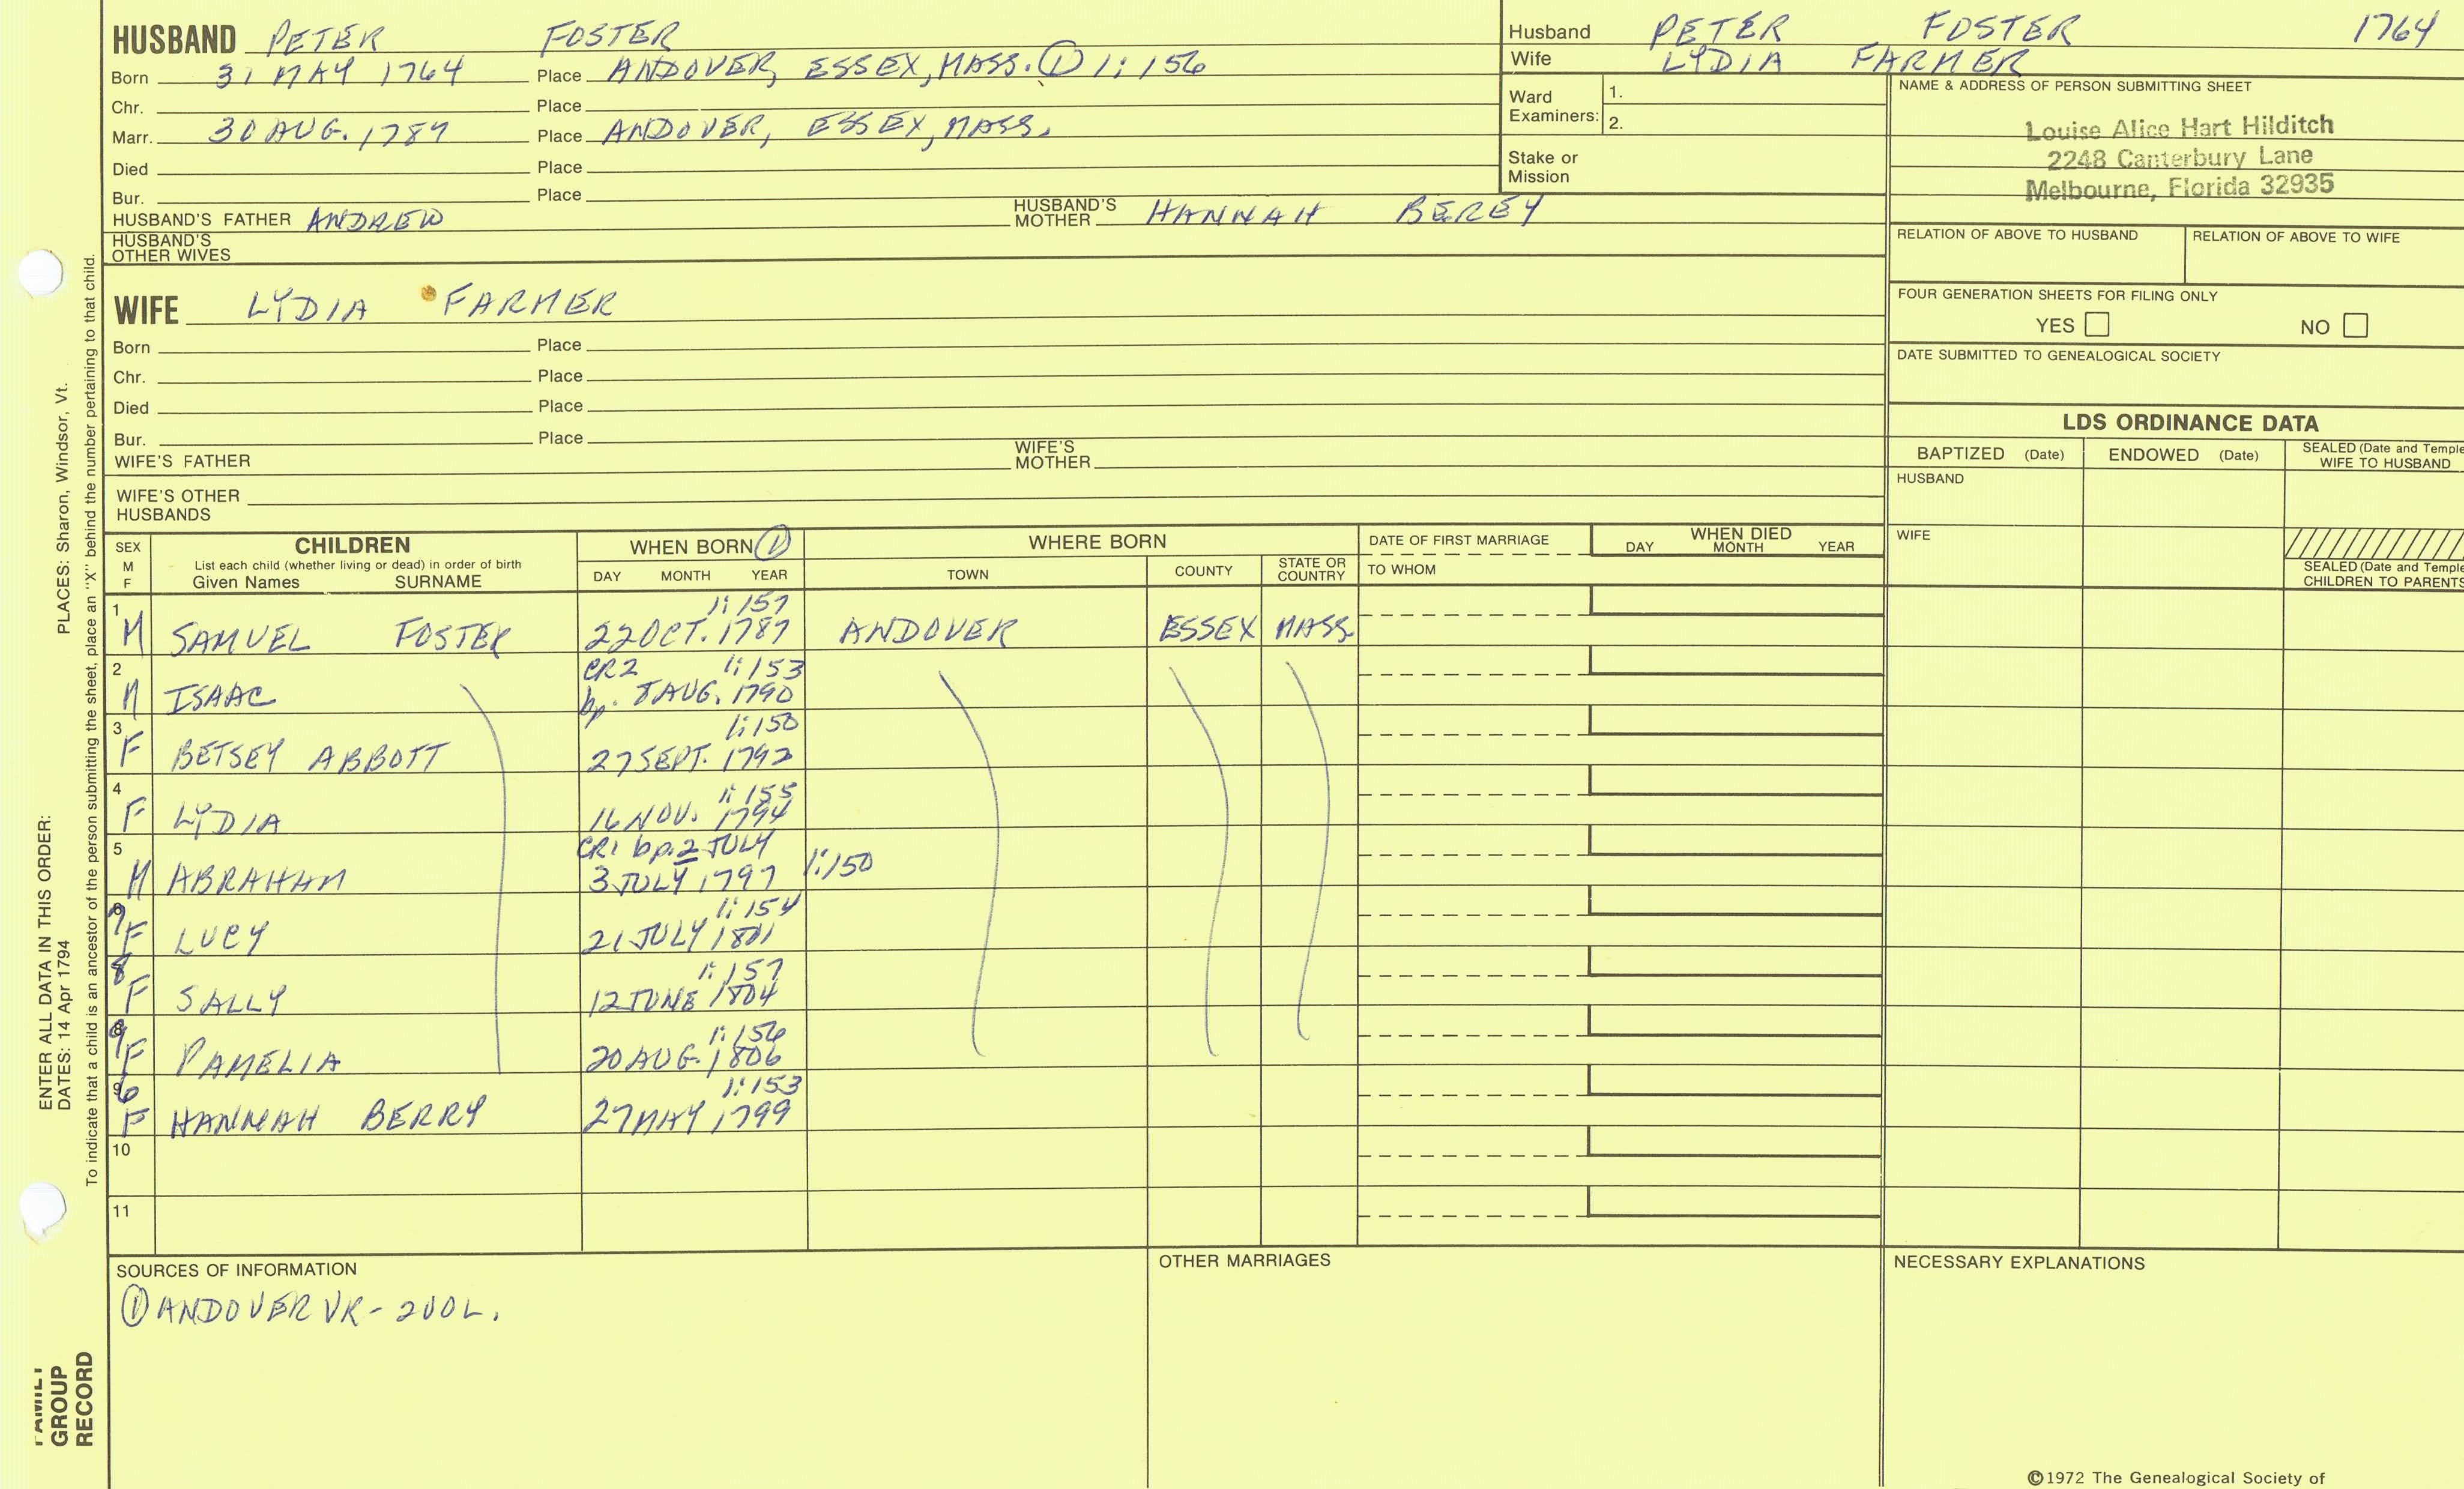 HUSBAND PETER FOSTER
Born 31 MAY 1764 Place ANDOVER, ESSEX, MASS. ① 1:156
Chr. Place
Marr. 30 AUG. 1787 Place ANDOVER, ESSEX, MASS.
Died Place
Bur. Place
HUSBAND'S FATHER ANDREW HUSBAND'S MOTHER HANNAH BEREY
HUSBAND'S OTHER WIVES
Husband PETER FOSTER 1764
Wife LYDIA FARMER
Ward Examiners: 1.
2.
Stake or Mission
NAME & ADDRESS OF PERSON SUBMITTING SHEET
Louise Alice Hart Hilditch
2248 Canterbury Lane
Melbourne, Florida 32935
RELATION OF ABOVE TO HUSBAND RELATION OF ABOVE TO WIFE
FOUR GENERATION SHEETS FOR FILING ONLY
YES NO
DATE SUBMITTED TO GENEALOGICAL SOCIETY
WIFE LYDIA FARMER
Born Place
Chr. Place
Died Place
Bur. Place
WIFE'S FATHER WIFE'S MOTHER
WIFE'S OTHER HUSBANDS
LDS ORDINANCE DATA
BAPTIZED (Date) ENDOWED (Date) SEALED (Date and Temple WIFE TO HUSBAND
HUSBAND
WIFE
SEALED (Date and Temple CHILDREN TO PARENTS
SEX M F
CHILDREN
List each child (whether living or dead) in order of birth
Given Names SURNAME
WHEN BORN ①
DAY MONTH YEAR
WHERE BORN
TOWN COUNTY STATE OR COUNTRY
DATE OF FIRST MARRIAGE
TO WHOM
WHEN DIED
DAY MONTH YEAR
1 1:157
M SAMUEL FOSTER 22 OCT. 1787 ANDOVER ESSEX MASS.
2 CR2 1:153
M ISAAC bp. 8 AUG. 1790
3 1:150
F BETSEY ABBOTT 27 SEPT. 1792
4 1:155
F LYDIA 16 NOV. 1794
5 CR1 bp. 2 JULY
M ABRAHAM 3 JULY 1797 1:150
7 1:154
F LUCY 21 JULY 1801
8 1:157
F SALLY 12 JUNE 1804
9 1:156
F PAMELIA 20 AUG. 1806
6 1:153
F HANNAH BERRY 27 MAY 1799
10
11
SOURCES OF INFORMATION
① ANDOVER VR - 2 VOL.
OTHER MARRIAGES
NECESSARY EXPLANATIONS
©1972 The Genealogical Society of
PLACES: Sharon, Windsor, Vt.
ENTER ALL DATA IN THIS ORDER:
DATES: 14 Apr 1794
To indicate that a child is an ancestor of the person submitting the sheet, place an "X" behind the number pertaining to that child.
FAMILY
GROUP
RECORD